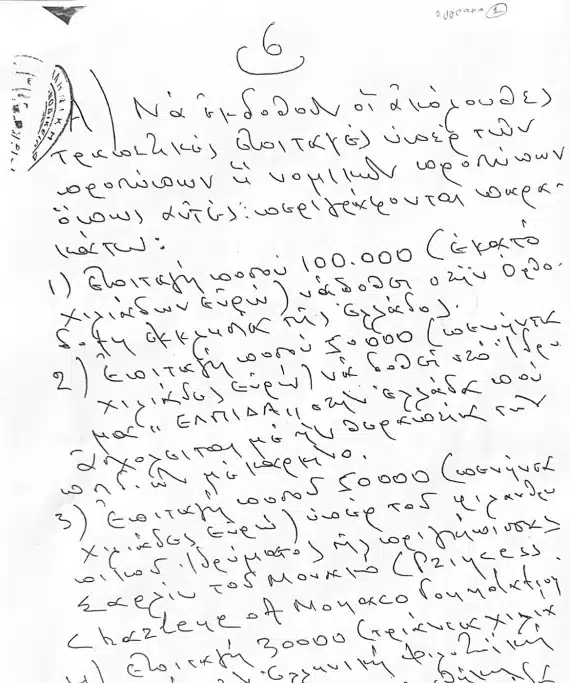 6
Α) Νά ἐκδοθοῦν οἱ ἀκόλουθες
τραπεζικές ἐπιταγές ὑπέρ τῶν
προσώπων ἤ νομικῶν προσώπων
ὅπως αὐτές περιγράφονται παρα-
κάτω:
1) Ἐπιταγή ποσοῦ 100.000 (ἑκατό
χιλιάδων εὐρώ) νά δοθεῖ στήν Ὀρθό-
δοξη ἐκκλησία τῆς Ἑλλάδος.
2) Ἐπιταγή ποσοῦ 50000 (πενήντα
χιλιάδες εὐρώ) νά δοθεῖ στό ἵδρυ
μα "ΕΛΠΙΔΑ" στήν Ἑλλάδα πού
ἀσχολεῖται μέ τήν θεραπεία τῶν
παιδιῶν μέ καρκίνο.
3) Ἐπιταγή ποσοῦ 50000 (πενήντα
χιλιάδες εὐρώ) ὑπέρ τοῦ φιλανθρω
πικοῦ ἱδρύματος τῆς πριγκήπισσας
Σαρλίν τοῦ Μονακό (Princess
Charlene of Monaco Foundation
4) Ἐπιταγή 30000 (τριάντα χιλιά
Ἑλληνική